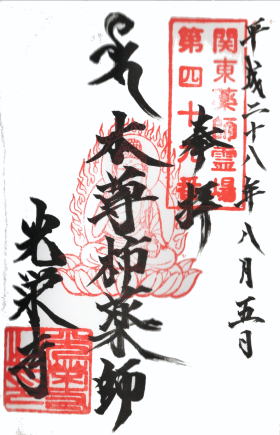 平成二十八年八月五日
関東薬師霊場
第四十九番
奉拝
本尊柿薬師
光栄寺